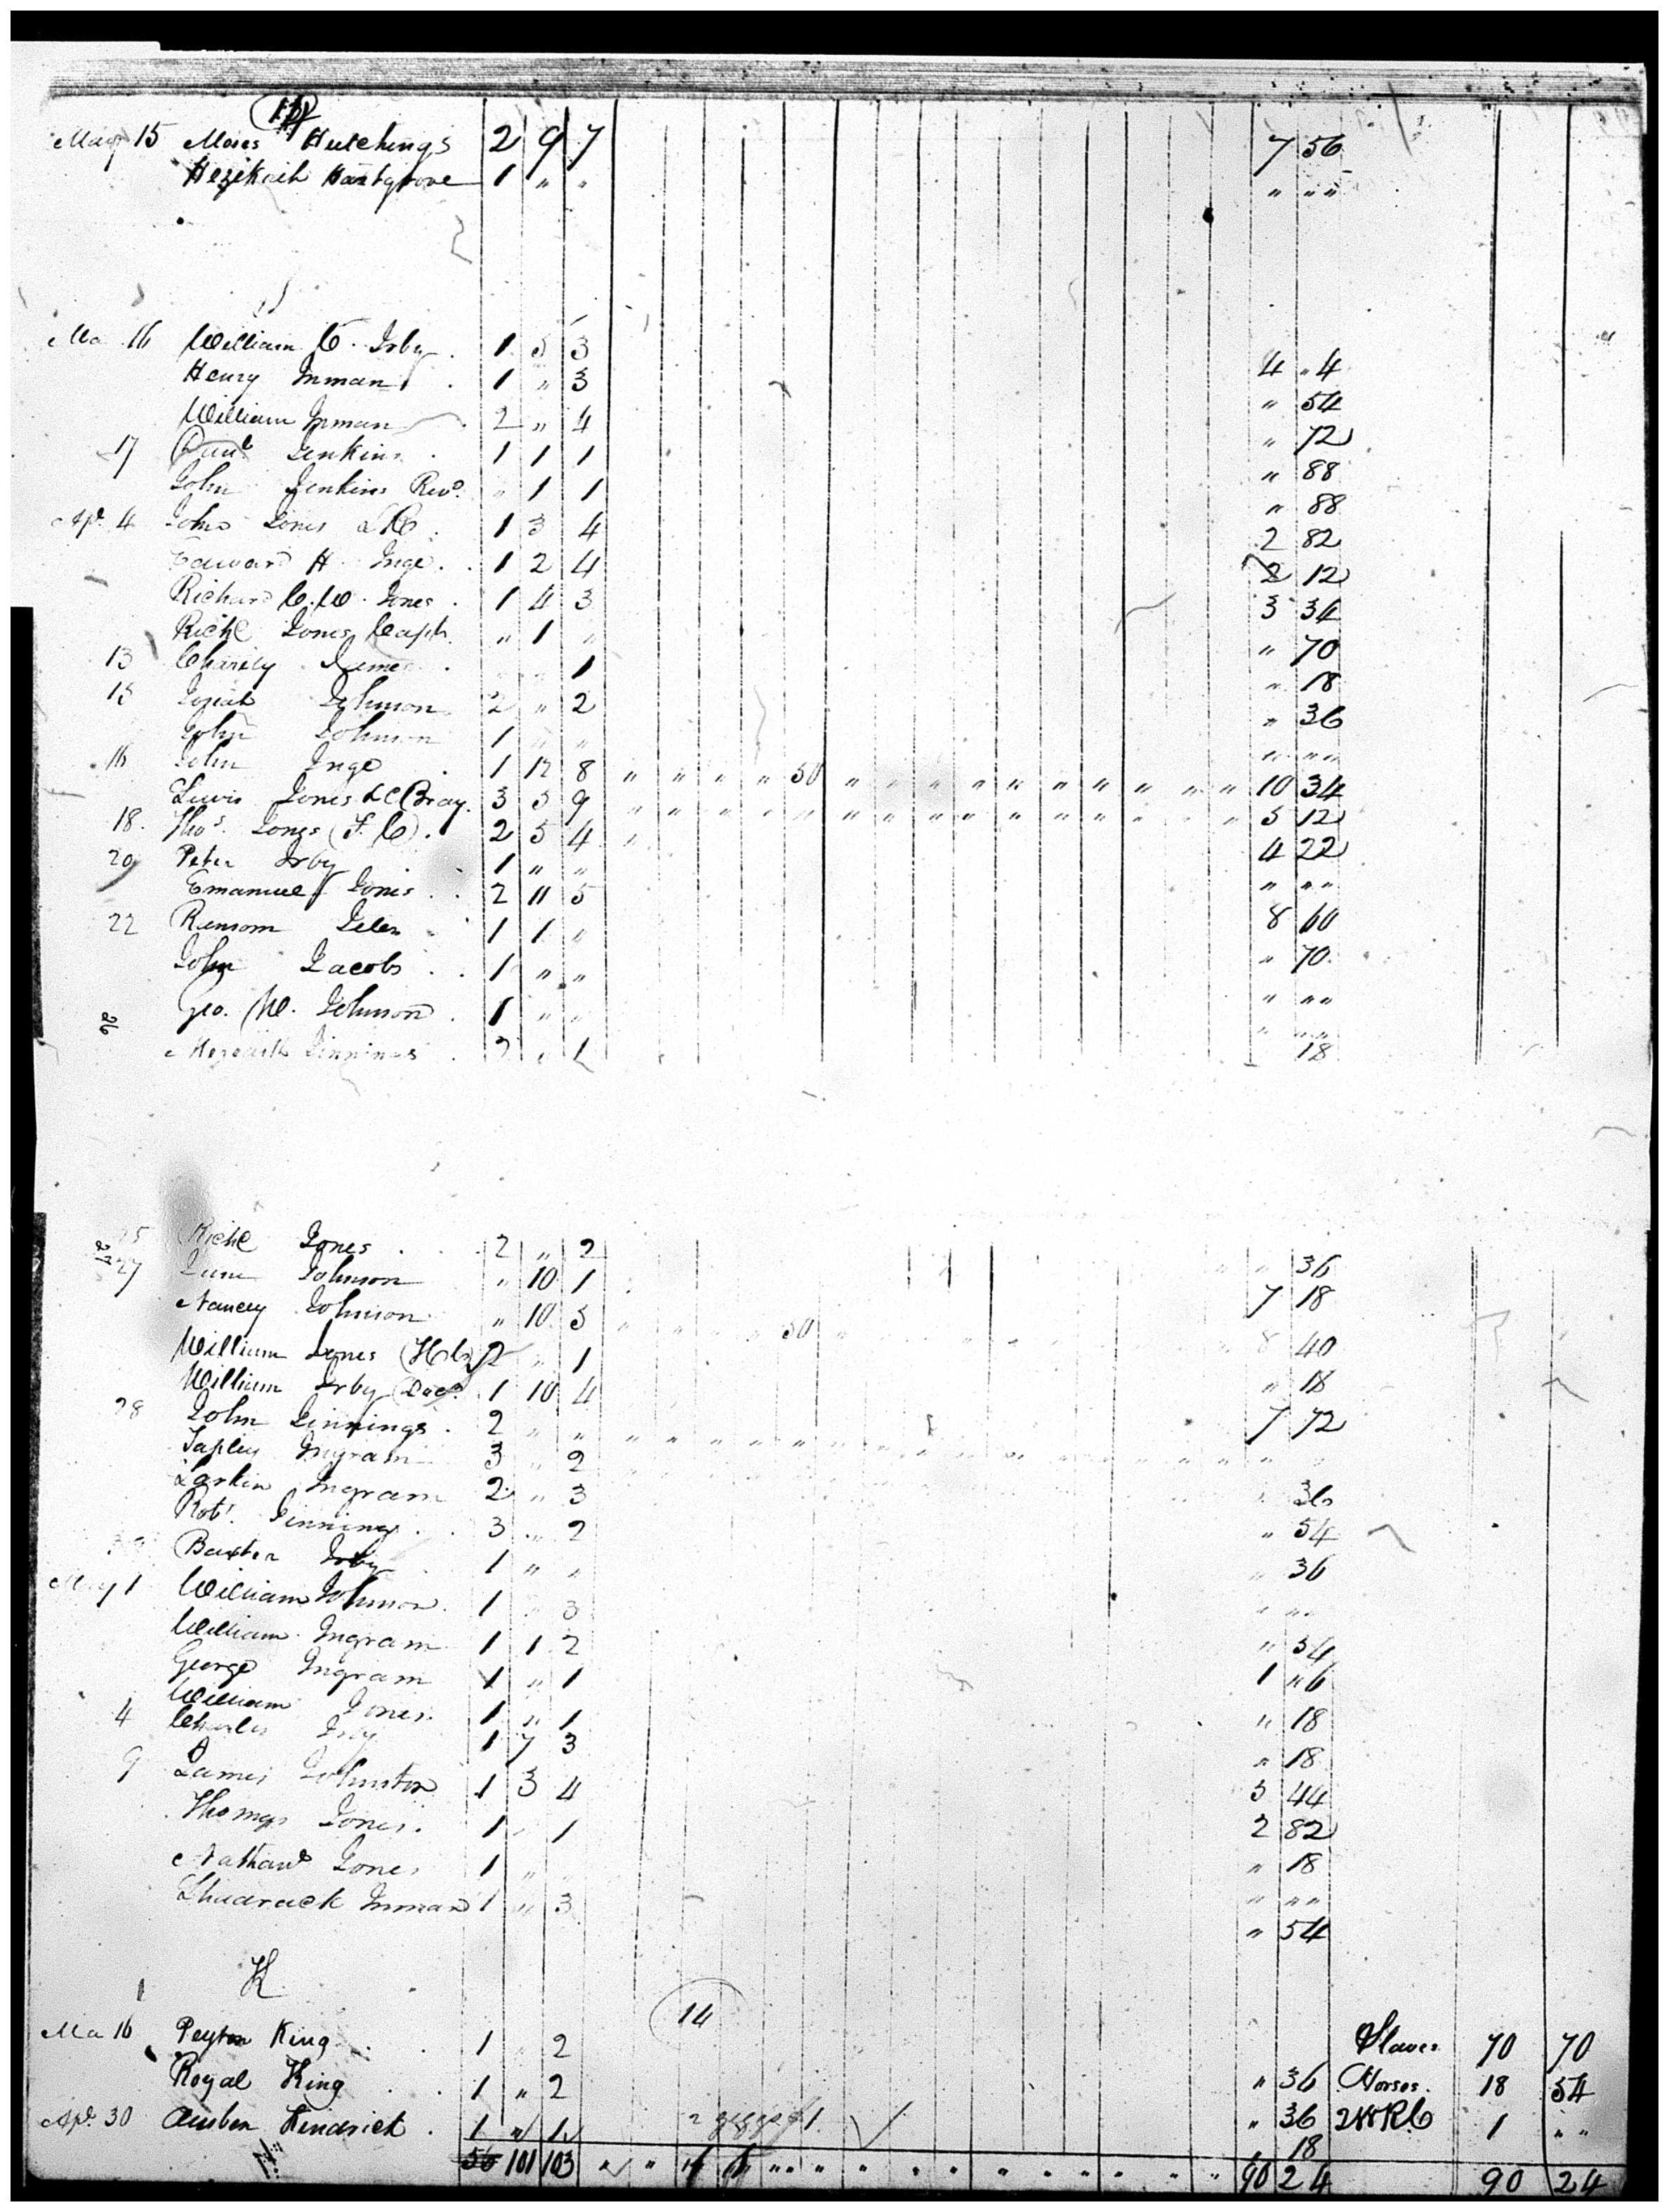 May 15 Moses Hutchings 2 9 7 7 56
Hezekiah Hartgrove 1 " " " " "
J
Ma 16 William C. Irby 1 5 3 4 " 4
Henry Inman 1 " 3 " 54
William Inman 2 " 4 " 72
17 Danl Jenkins 1 1 1 " 88
John Jenkins Revd. " 1 1 " 88
Apl. 4 John Jones LC 1 3 4 2 82
Edward H Inge 1 2 4 2 12
Richard C. W. Jones 1 4 3 3 34
Richd Jones Capt. " 1 " " 70
13 Charity James " " 1 " 18
15 Josiah Johnson 2 " 2 " 36
John Johnson 1 " " " " "
16 John Inge 1 12 8 " " " " 50 " " " " " " " " " " 10 34
Lewis Jones LC Bray 3 5 9 5 12
18. Thos. Jones (F. C) 2 5 4 4 22
20 Peter Irby 1 " " " " "
Emanuel Jones 2 11 5 8 60
22 Ransom 1 1 " " 70
John Jacobs 1 " " " " "
Geo. W. Johnson 1 " " " " "
26 Jinnings 2 " 1 18
25 Richd Jones 2 " 2 " 36
27 Johnson " 10 1 7 18
Nancy Johnson " 10 5 50 8 40
William Jones 2 " 1 " 18
William Irby 1 10 4 7 72
28 John Jinnings 2 " " " "
Tapley Ingram 3 " 2 " 36
Larkin Ingram 2 " 3 " 54
Robt. Jinnings 3 " 2 " 36
Baxter Irby 1 " " " " "
May 1 William Johnson 1 " 3 " 54
William Ingram 1 1 2 1 " 6
George Ingram 1 " 1 " 18
William Jones 1 " 1 " 18
4 Charles Irby 1 7 3 5 44
9 James Johnston 1 3 4 2 82
Thomas Jones 1 " 1 " 18
Nathanl Jones 1 " " " " "
Shadrack Inman 1 " 3 " 54
K
14
Ma 16 Peyton King 1 " 2 " 36 Slaves 70 70
Royal King 1 " 2 " 36 Horses 18 54
Apl. 30 Kendrick 1 " 1 " 18 1 " "
56 101 103 90 24 90 24